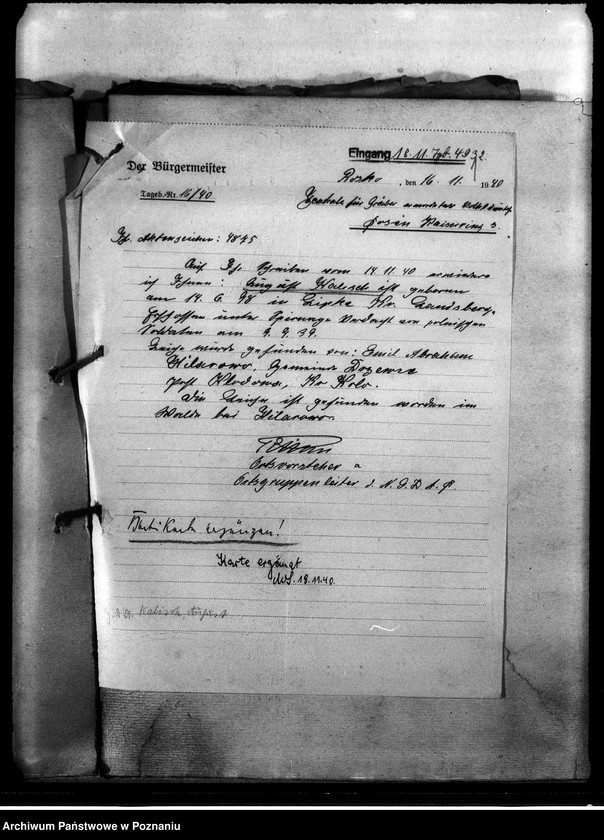 Eingang 18.11. Igb. 4932.
Der Bürgermeister
Rozko, den 16. 11. 1940
Tageb.-Nr. 16/40
Zentrale für Gräber ermordeter Volksdeutsch.
Posen Kaiserring 3.
Ihr Aktenzeichen: 4845
Auf Ihr Schreiben vom 14.11.40 erwidere
ich Ihnen: August Kalisch ist geboren
am 14. 6. 98 in Lipke Kr. Landsberg.
Erschossen unter Spionage Verdacht von polnischen
Soldaten am 9. 9. 39.
Leiche wurde gefunden von: Emil Abraham
Hilarowo, Gemeinde
Post Klodowa, Kr Kolo.
Die Leiche ist gefunden worden im
Walde bei Hilarowo.
Ortsvorsteher u
Ortsgruppenleiter d. N. S. D. A. P.
Karte ergänzen!
Karte ergänzt
18.11.40.
z. d. A. Kalisch, August
Archiwum Państwowe w Poznaniu